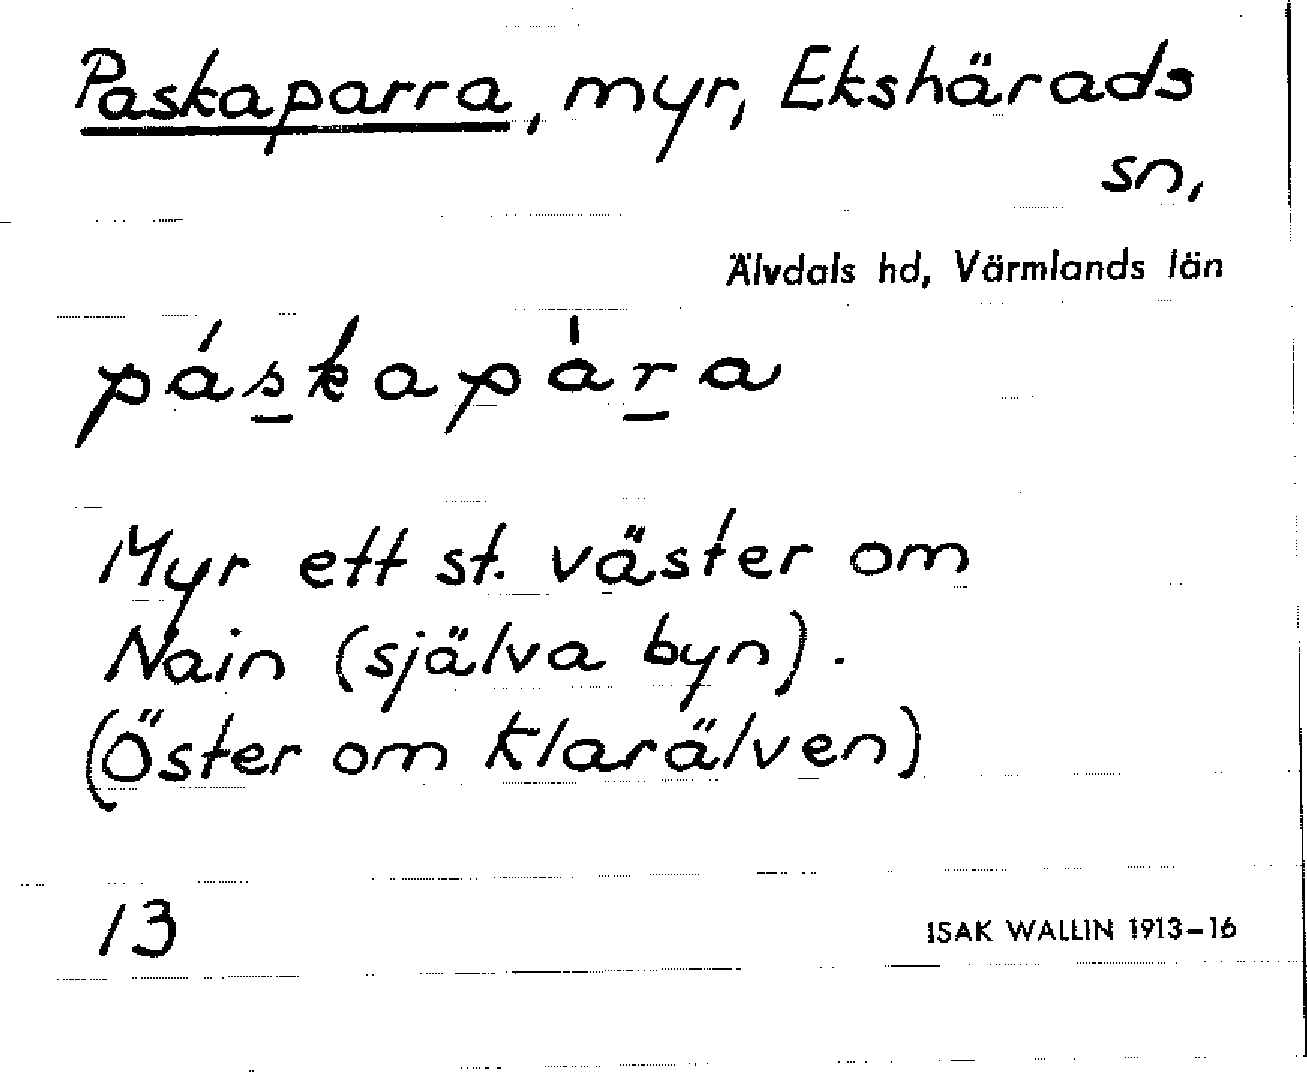 Paskaparra, myr, Ekshärads
sn,
Älvdals hd, Värmlands län
páska̍para
Myr ett st. väster om
Nain (själva byn).
(Öster om Klarälven)
13
ISAK WALLIN 1913-16